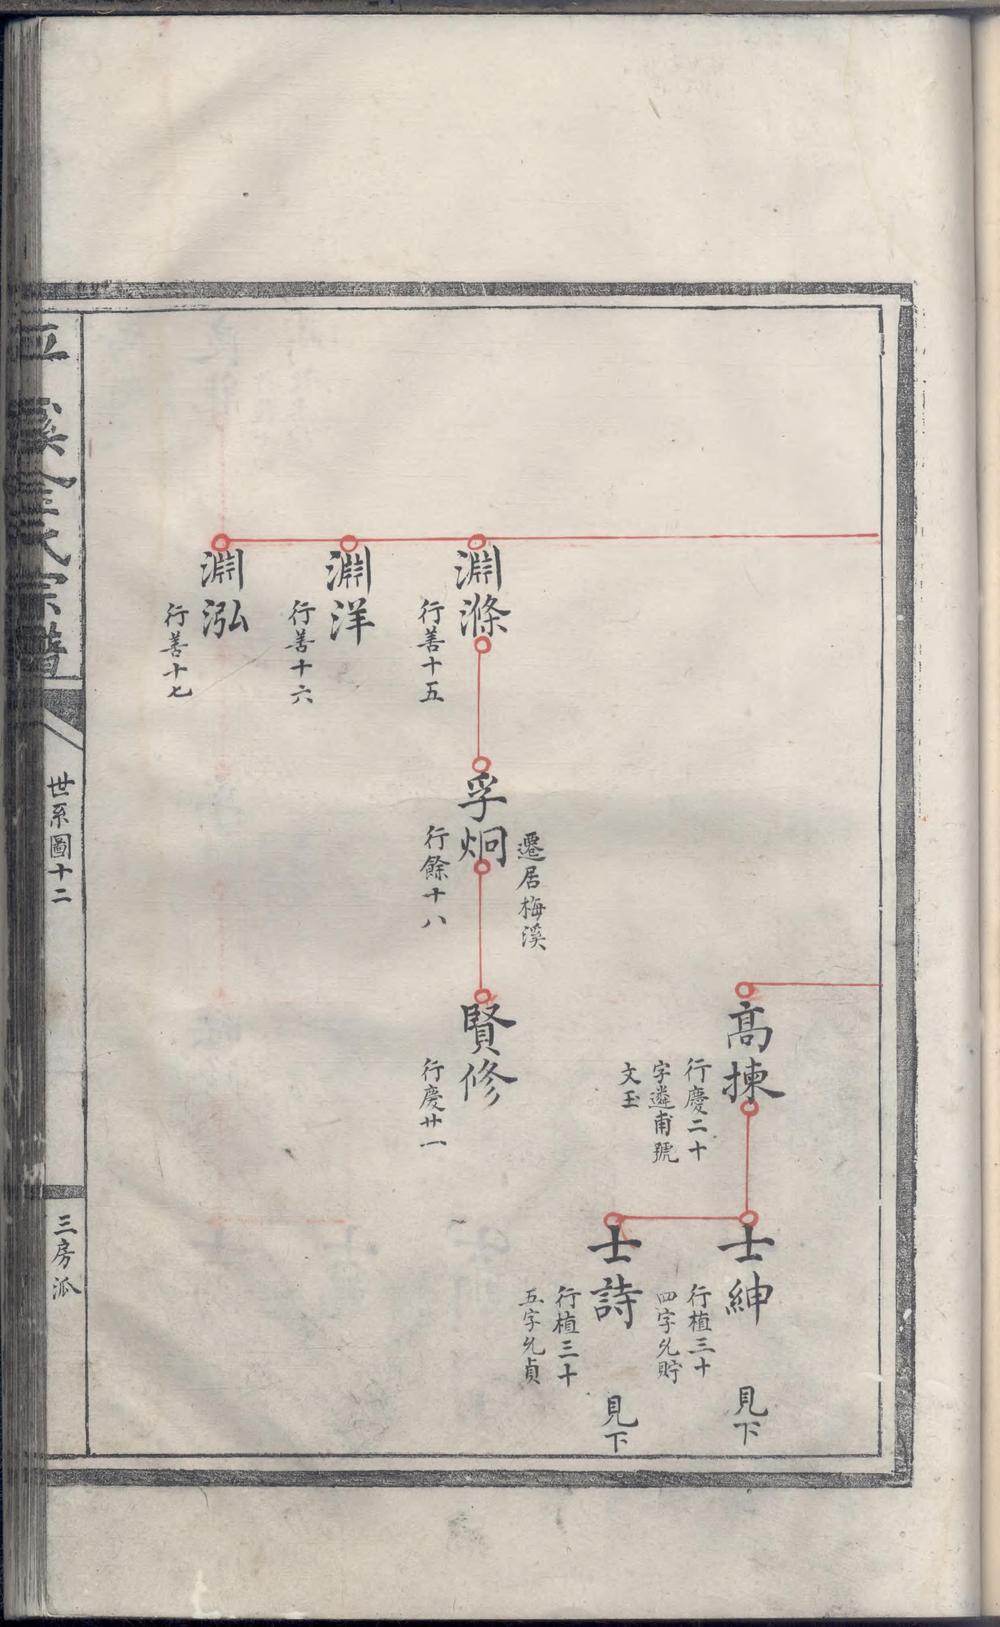 高揀
行慶二十
字遴甫號
文玉
士紳
行植三十
四字允貯
見下
士詩
行植三十
五字允貞
見下
淵滌
行善十五
孚炯
遷居梅溪
行餘十八
賢修
行慶廿一
淵洋
行善十六
淵泓
行善十七
溪金氏宗譜
世系圖十二
三房派